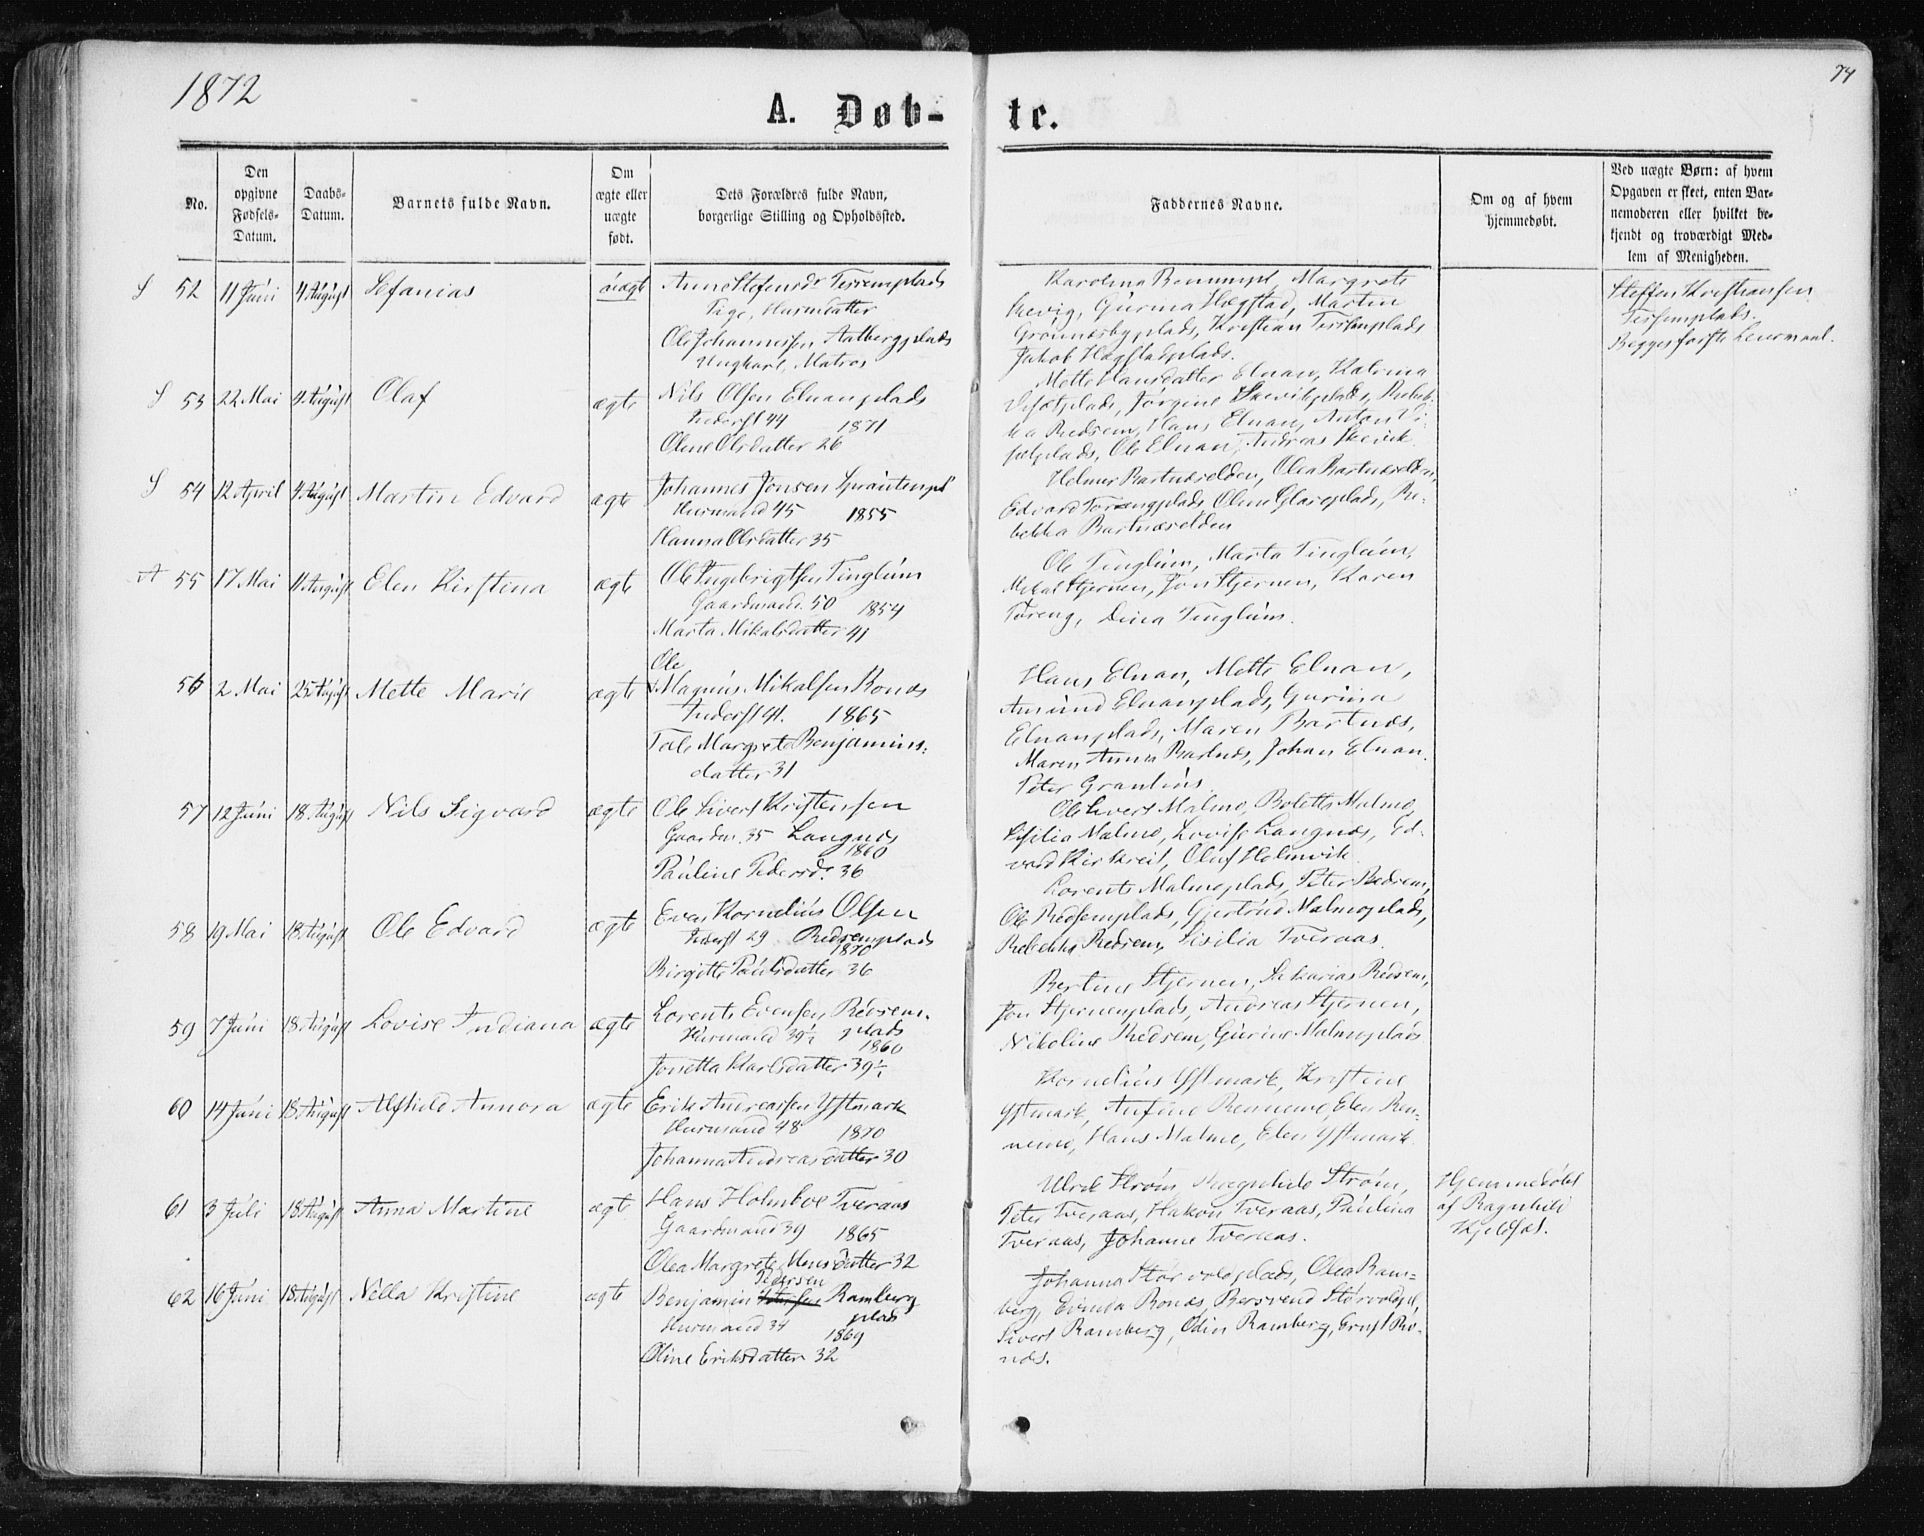 1872
74
A. Døb-
te.
No.
Den opgivne Fødsels-Datum.
Daabs-Datum.
Barnets fulde Navn.
Om ægte eller uægte født.
Dets Forældres fulde Navn, borgerlige Stilling og Opholdssted.
Faddernes Navne.
Om og af hvem hjemmedøbt.
Ved uægte Børn: af hvem Opgaven er skeet, enten Barnemoderen eller hvilket bekjendt og troværdigt Medlem af Menigheden.
S 52 11 Juni 4 August Sefanias uægt
Anne Stefensdr
Pige, Husmdatter
Ole Johannessen Aalbergplads
Ungkarl, Matros
Karolina Margrete
Skevig, Gurina Hegstad, Martin
Kristian
Jakob
Steffen Kristiansen
Begges første Leiermaal.
S 53 22 Mai 4 August Olaf ægte
Nils Olsen Elnanplads
Inderst 44 1871
Olene Olsdatter 26
Mette Hansdatter Elnan,
Jørgine Skevikplads,
Redsem, Hans Elnan, Anton
Ole Elnan, Andreas Skevik.
S 54 12 April 4 August Martin Edvard ægte
Johannes Jonsen
Husmand 45 1855
Hanna Olsdatter 35
Helmer Olea
Edvard Oline Re-
bekka
A 55 17 Mai 11 August Elen Kirstina ægte
Ole Ingebrigtsen Tinglum
Gaardmand 50 1854
Marta Mikalsdatter 41
Ole Tinglum, Marta Tinglum,
Mikal Stjernen, Jon Stjernen, Karen
Føreng, Dina Tinglum.
56 2 Mai 25 August Mette Marie ægte
Ole
Magnus Mikalsen Ronæs
Inderst 41. 1865
Margrete Benjamins-
datter 31
Hans Elnan, Mette Elnan,
Amund Elnanplads, Gurina
Elnanplads, Maren Bartnæs,
Maren Anna Bartnæs, Johan Elnan.
Peter
57 12 Juni 18 August Nils Sigvard ægte
Ole Sivert Kristensen
Gaardm. 35 Langnæs
1860
Pauline Pedersd. 36
Ole Sivert Malmo, Malmo,
Malmo, Lovise Langnæs, Ed-
vard Olaf Holmvik.
58 19 Mai 18 August Ole Edvard ægte
Even Kornelius Olsen
Inderst 29 Redsemplads
1870
Birgitte Paulsdatter 36
Lorents Malmoplads, Peter Redsem,
Ole Redsemplads, Gjertrud Malmoplads,
Rebekka Redsem, Sisilia Tveraas.
59 7 Juni 18 August Lovise Indiana ægte
Lorents Evensen Redsem-
Husmand 39½ plads
1860
Jonetta Karlsdatter 39½
Bertine Stjernen, Sakarias Redsem,
Jon Stjernenplads, Andreas Stjernen,
Nikoline Redsem, Gurine Malmoplads
60 14 Juni 18 August Alfhild Annora ægte
Erik Andreassen Ystmark
Husmand 48 1870
Johanna Andreasdatter 30
Kornelius Ystmark, Kristine
Ystmark, Rennemo, Elen Ren-
nemo, Hans Malmo, Elen Ystmark.
61 3 Juli 18 August Anna Martine ægte
Hans Holmboe Tveraas
Gaardmand 39 1865
Olea Margrete datter 32
Ulrik Strøm, Ragnhild Strøm,
Peter Tveraas, Hakon Tveraas, Paulina
Tveraas, Johanne Tveraas.
Hjemmedøbt
af Ragnhild
Kjeldsøt.
62 16 Juni 18 August Nella Kristine ægte
Pedersen
Benjamin Ramberg
plads
Husmand 34
1869
Oline Eriksdatter 32
Johanna Størvoldplads, Olea Ram-
berg, Ronæs, Størvoldpl.,
Sivert Ramberg, Odin Ramberg, Ernst Ro-
næs.